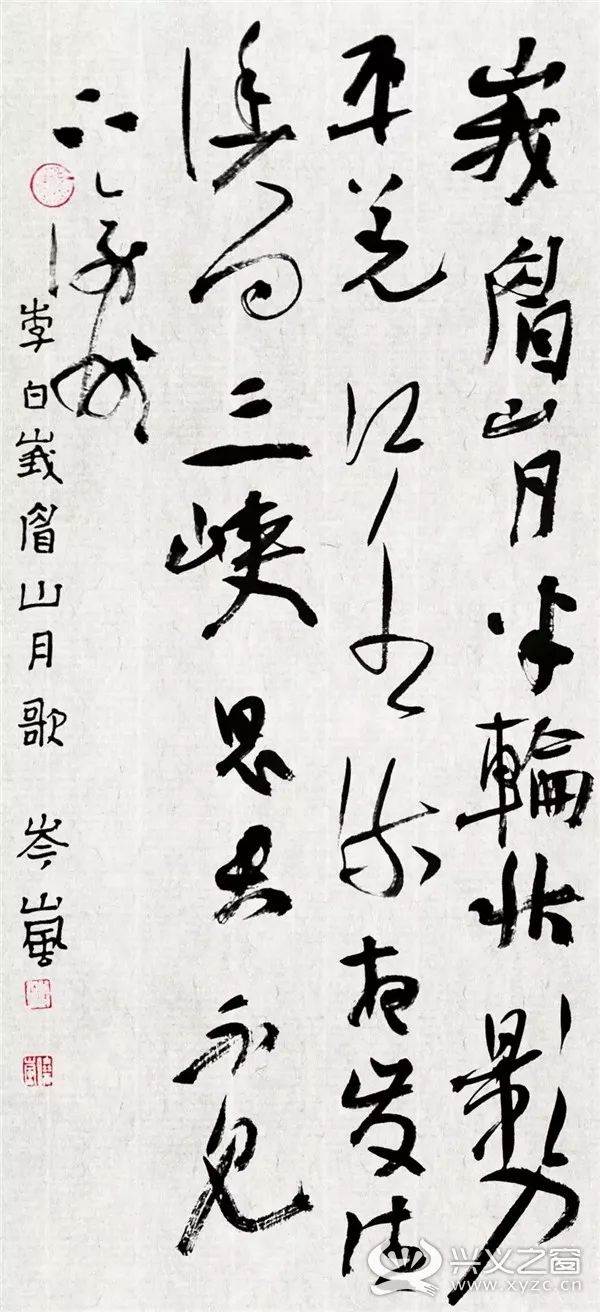 峩眉山月半輪秋影入
平羌江水流夜發清
溪向三峽思君不見
下渝州
李白峩眉山月歌 岑嵐
兴义之窗
www.xyzc.cn